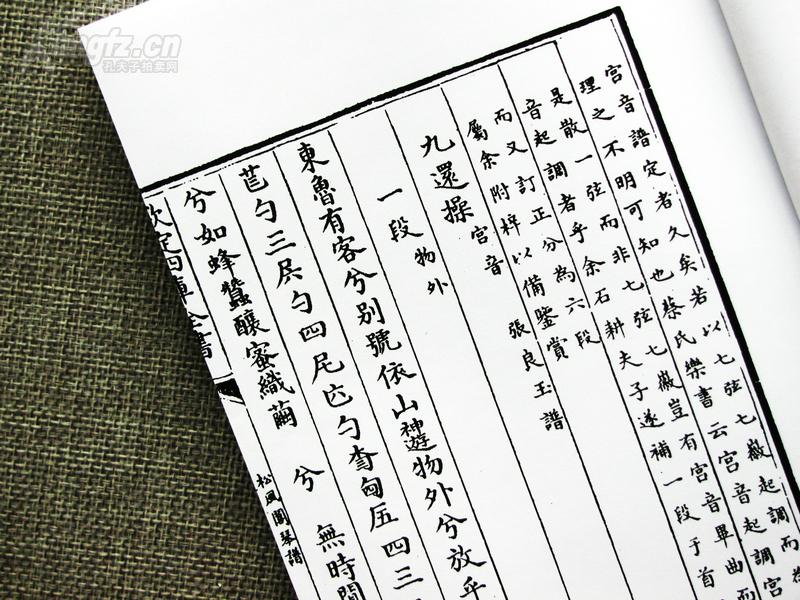 宮音譜定者久矣若以七弦七徽起調而為
理之不明可知也蔡氏樂書云宮音起調宮
是散一弦而非七弦七徽豈有宮音畢曲而
音起調者乎余石耕夫子遂補一段于首
而又訂正分為六段
屬余附梓以備鑒賞 張良玉譜
九還操 宮音
一段 物外
東魯有客兮別號依山神遊物外兮放乎
勺三勺四勺四三
兮如蜂蠶釀蜜織繭 兮 無時間
欽定四庫全書
松風閣琴譜
fz.cn
孔夫子拍卖网